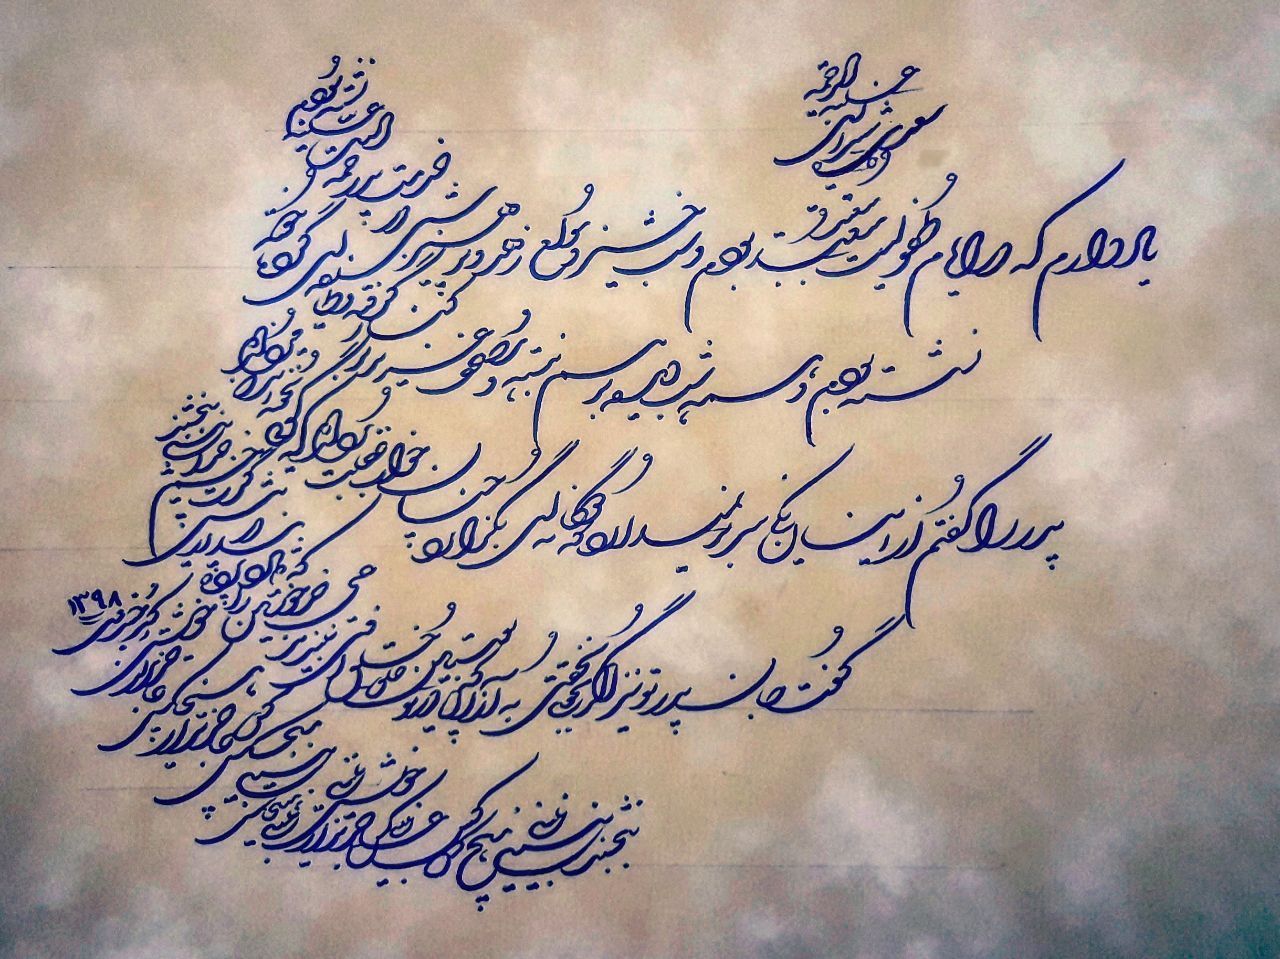 سعدی شیرازی علیه الرحمه
یاد دارم که در ایام طفولیت متعبد بودم و شب خیز و مولع زهد و پرهیز شبی در خدمت پدر رحمة الله علیه
نشسته بودم و همه شب دیده بر هم نبسته و مصحف عزیز بر کنار گرفته و طایفه‌ای گرد ما خفته
پدر را گفتم از اینان یکی سر بر نمیدارد که دوگانه‌ای بگزارد چنان خواب غفلت برده‌اند که گویی نخفته‌اند که مرده‌اند
گفت جان پدر تو نیز اگر بخفتی به از آن که در پوستین خلق افتی
نبیند مدعی جز خویشتن را که دارد پرده پندار در پیش
گرت چشم خدا بینی ببخشند
نبینی هیچ کس عاجزتر از خویش
۱۳۹۸